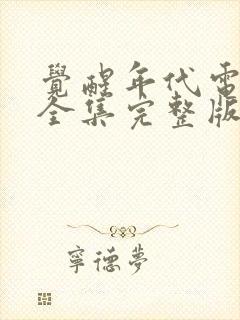 覺醒年代電
全集完整版
寧德夢